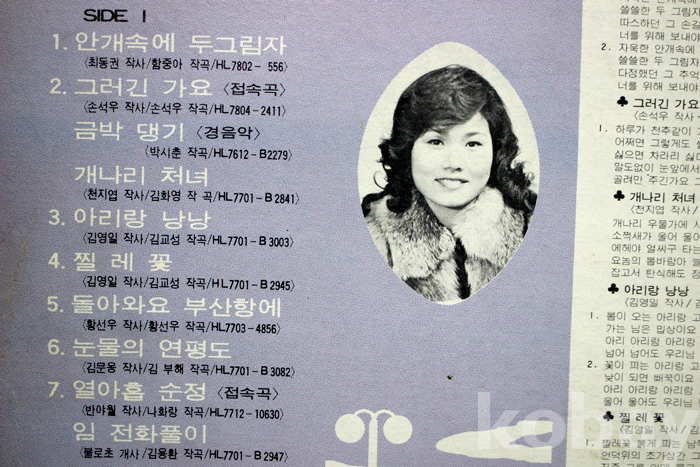 SIDE 1
1. 안개속에 두그림자
〈최동권 작사/함중아 작곡/HL7802- 556〉
2. 그러긴 가요 〈접속곡〉
〈손석우 작사/손석우 작곡/HL7804-2411〉
금박 댕기 〈경음악〉
〈박시춘 작곡/HL7612-B2279〉
개나리 처녀
〈천지엽 작사/김화영 작 곡/HL7701-B2841〉
3. 아리랑 낭낭
〈김영일 작사/김교성 작곡/HL7701-B3003〉
4. 찔 레 꽃
〈김영일 작사/김교성 작곡/HL7701-B2945〉
5. 돌아와요 부산항에
〈황선우 작사/황선우 작곡/HL7703-4856〉
6. 눈물의 연평도
〈김문응 작사/김 부해 작곡/HL7701-B3082〉
7. 열아홉 순정 〈접속곡〉
〈반야월 작사/나화랑 작곡/HL7712-10630〉
임 전화풀이
〈불로초 개사/김용환 작곡/HL7701-B2947〉
쓸쓸한 두 그림자
따스하던 그 손길
너를 위해 보내야
2. 자욱한 안개속에
쓸쓸한 두 그림자
다정했던 그 추억
너를 위해 보내야
♣ 그러긴 가요
〈손석우 작사
1. 하루가 천추같이
어쩌면 그렇게도
싫으면 차라리 싫
말도없이 눈앞에서
골려만 주긴가요
♣ 개나리 처녀
〈천지엽 작사/
개나리 우물가에 사
소쩍새가 울어 울어
에헤야 얼씨구 타는
요놈의 봄바람아 늘
잡고서 탄식해도
♣ 아리랑 낭낭
〈김영일 작사/
1. 봄이 오는 아리랑 고
가는 님은 밉상이요
아리 아리랑 아리랑
넘어 넘어도 우리님
2. 꽃이 피는 아리랑 고
낮이 되면 뻐꾹이요
아리 아리랑 아리랑
울어 울어도 우리님
♣ 찔 레 꽃
〈김영일 작사/김
1. 찔레꽃 붉게 피는 남쪽
언덕위의 초가삼간 그